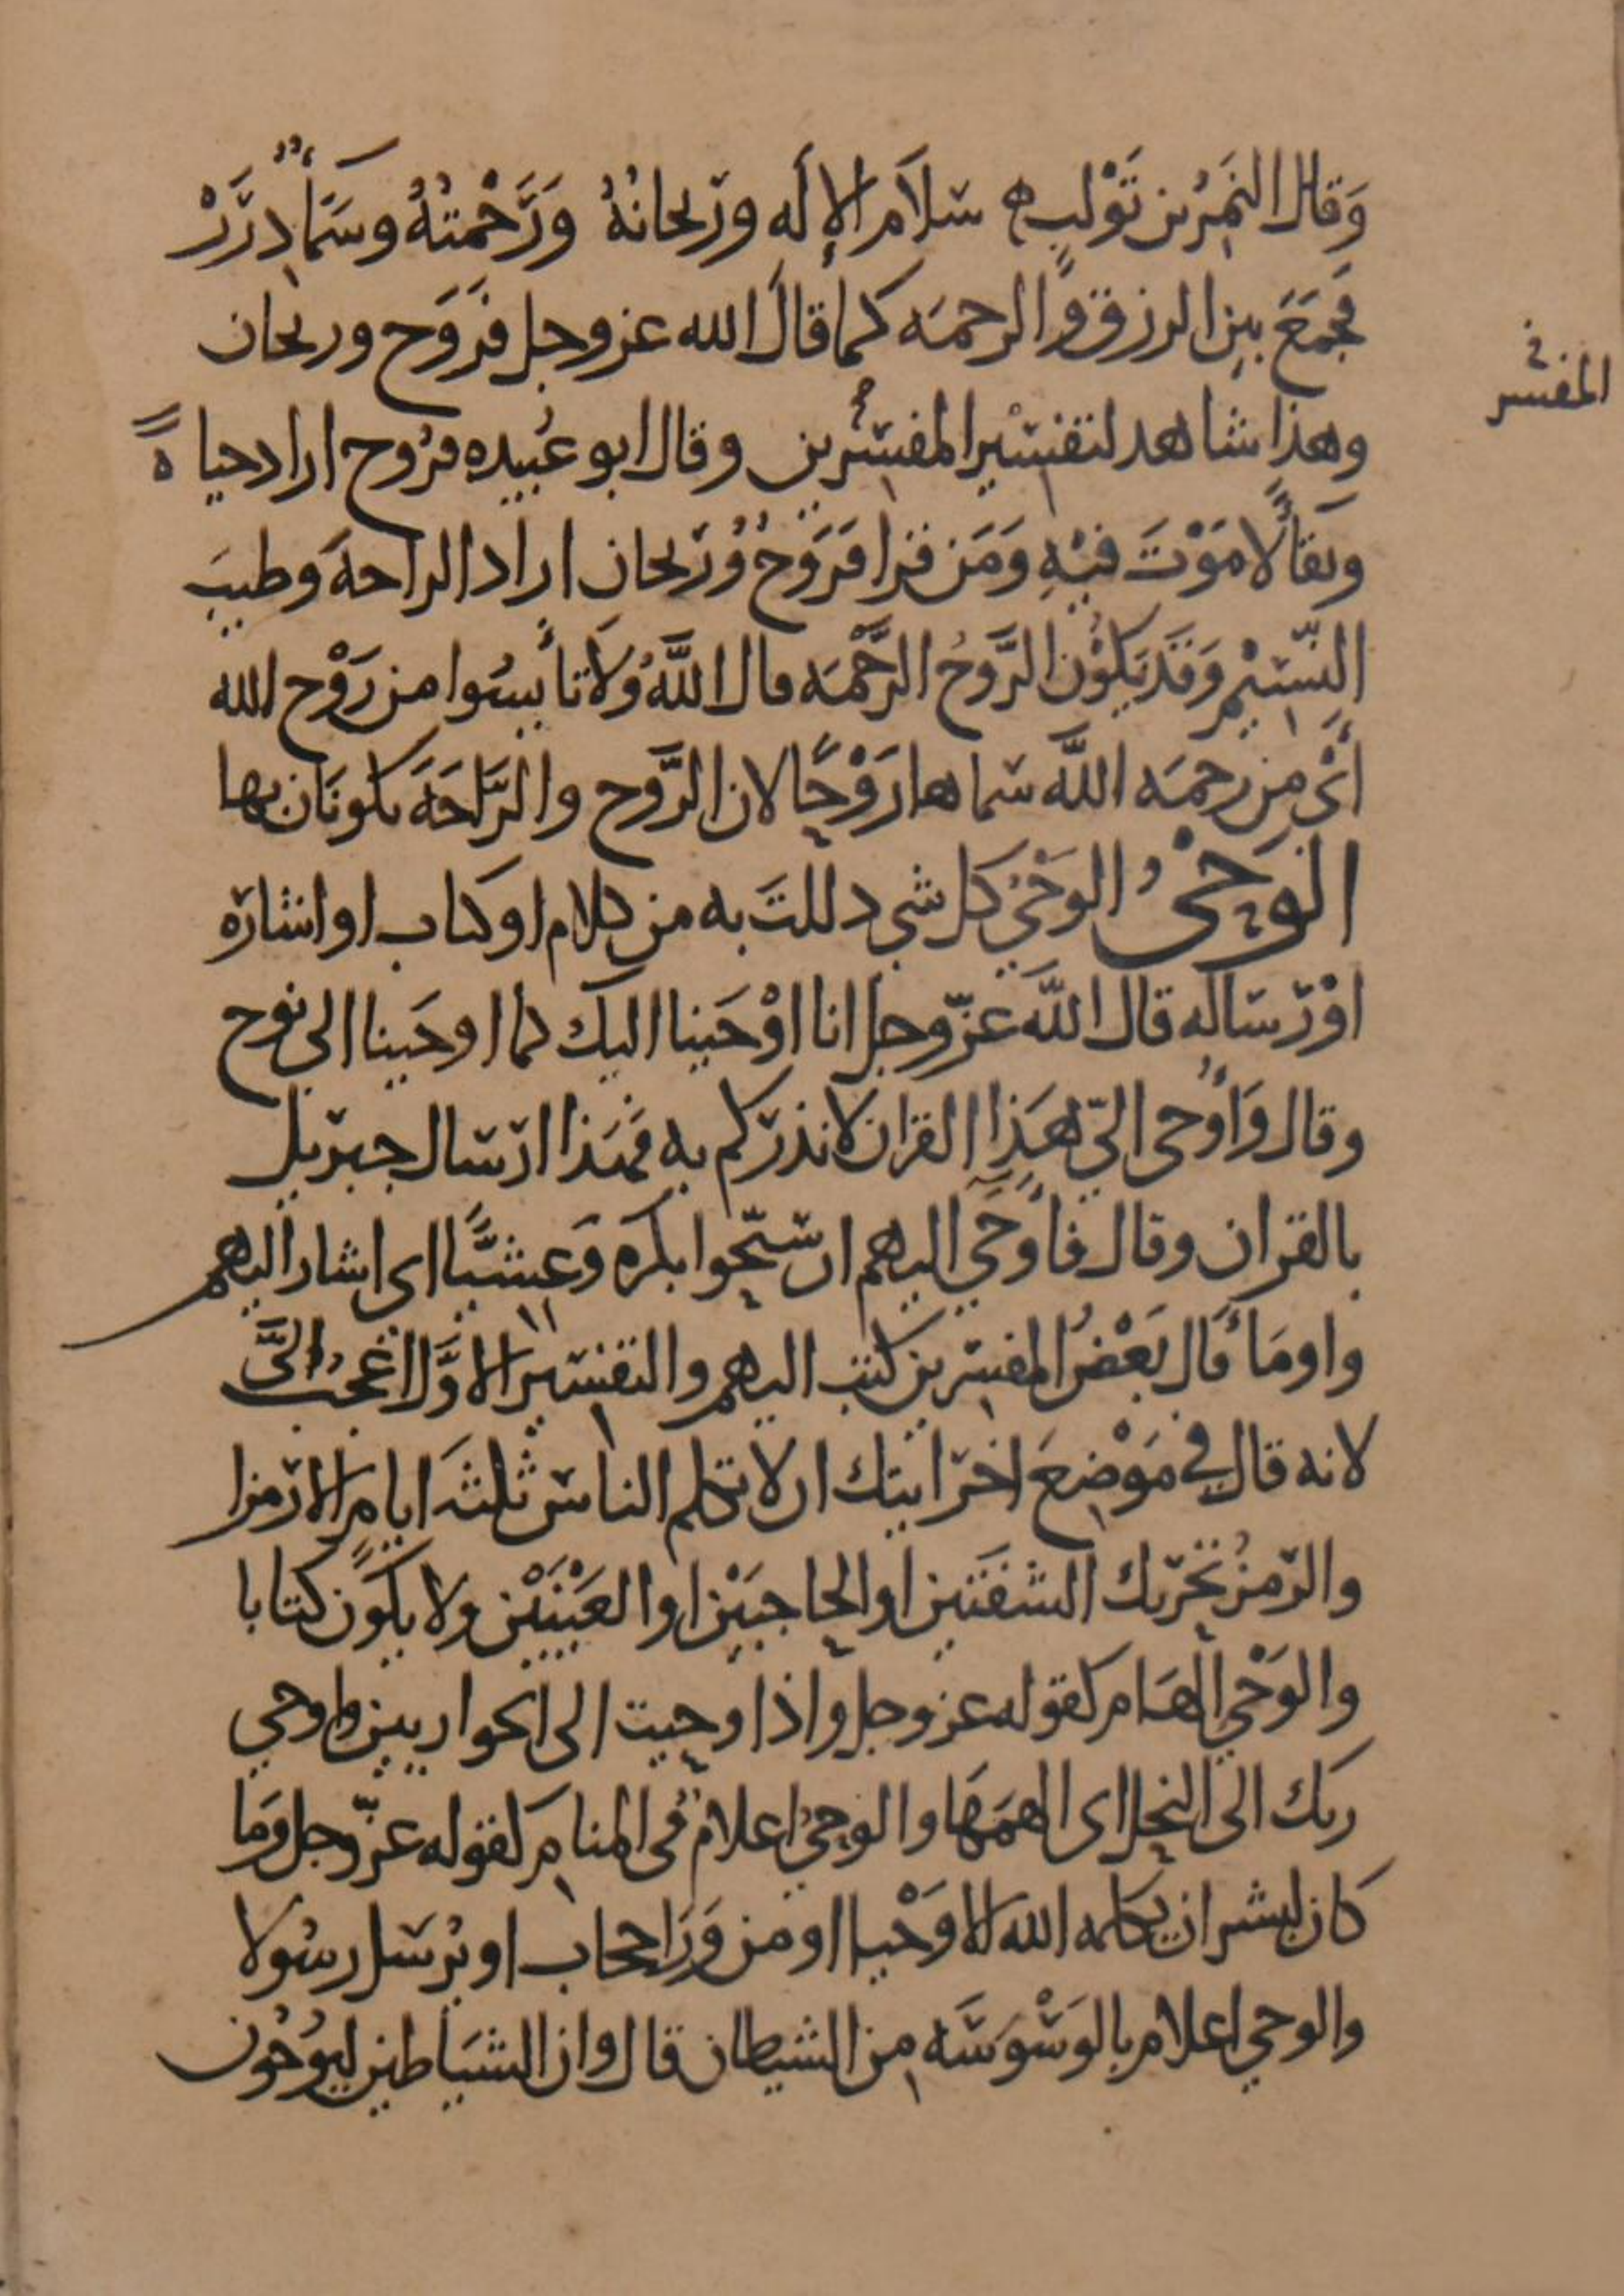 وَقال النَمِرُ بن تَوْلبٍ ه سَلاَم الإلَه ورَيحانهُ وَرَحْمتهُ وسَمَاءٌ دِرَرْ
فَجمَعَ بين الرزق والرحمَه كما قالَ الله عز وجل فرَوَح وريحان
وهذا شاهد لتفسير المفسرين وقال ابو عُبيده فرُوح اراد حياةً
وبَقاءً لا مَوْتَ فيهِ وَمَن قرا فرَوَحٌ وَرَيحان اراد الراحهَ وطيبَ
النّسيمِ وَقَد يَكوُن الرَّوحُ الرَّحْمَه قال اللَّهُ وَلا تاْيسُوا من رَوْح الله
أىْ من رحمَه اللَّه سَماها رَوْحًا لان الرَّوح والرَّاحَةَ يكونَان بها
الوَحْىُ الوَحْيُ كل شي دللتَ به من كلام او كتاب او اشارَه
اوْ رسَاله قال اللَّه عزّ وجل انا اوْحَينا اليك كما اوحَينا الى نوح
وقال وَأُوحى اليّ هَذا القران لانذركم به فهَذا ارسَال جبريل
بالقران وقال فاَوحَي اليهم ان سَبّحوا بكرَه وَعشيًّا اى اشار اليهم
واومَأَ قال بَعْضُ المفسرين كتب اليهم والتفسير الاوَّل اعْجبُ الىَّ
لانه قال في مَوْضعَ اخرَ ايتك ان لا تكلم الناسَ ثلثهَ ايام الا رَمزا
والرَمزُ تحْريك الشفَتين او الحاجبَيْن او العَيْنَيْن ولا يكَون كتابا
والوَحْي الهَام كقوله عز وجل واذ اوحيت الى الحواريين واوحى
ربك الى النحل اى الهمَهَا والوحىُ اعلام فى المنام كقوله عزّ وجل وَما
كان لبشر ان يكلمه الله الا وَحْيا او من وَرَا حجاب او يُرسَل رسُولا
والوحي اعلام بالوَسْوَسَه من الشيطان قال وان الشيَاطين ليوُحُون
المفسر